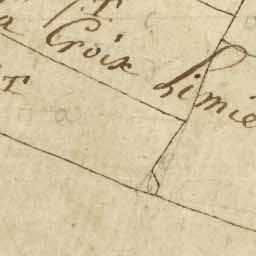 T
a Croix Limie
T